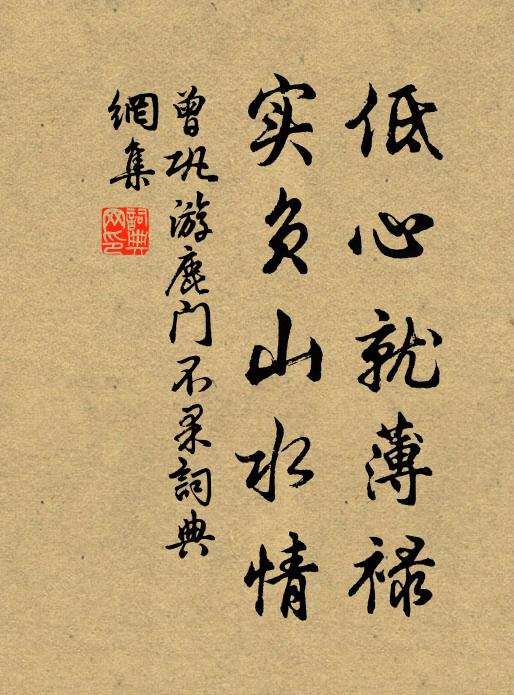 低心就薄禄
实负山水情
曾巩游鹿门不果詞典
網集
詞典
网印